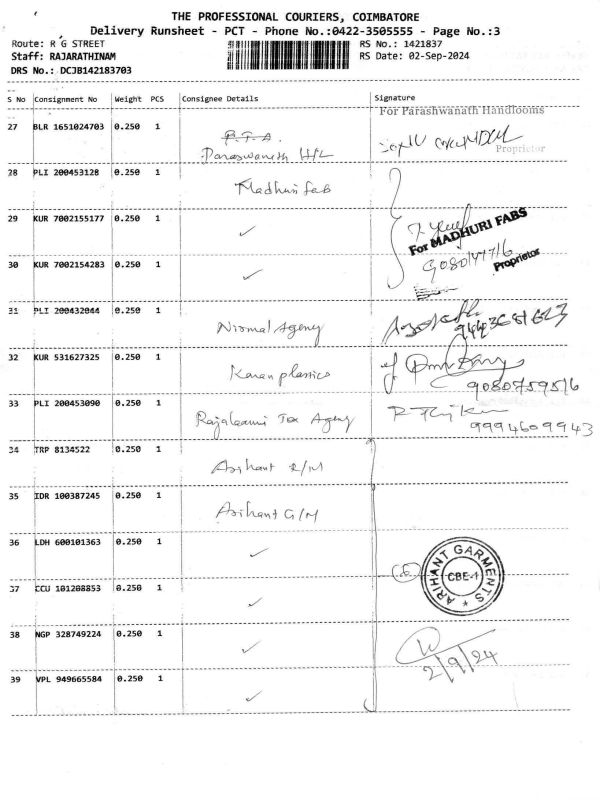 THE PROFESSIONAL COURIERS, COIMBATORE
Delivery Runsheet - PCT - Phone No.:0422-3505555 - Page No.:3
Route: R G STREET RS No.: 1421837
Staff: RAJARATHINAM RS Date: 02-Sep-2024
DRS No.: DCJB142183703
S No Consignment No Weight PCS Consignee Details Signature
For Parashwanath Handlooms
27 BLR 1651024703 0.250 1
Paraswanath H/L
Proprietor
28 PLI 200453128 0.250 1 Madhuri fab
29 KUR 7002155177 0.250 1 ✓
For MADHURI FABS
30 KUR 7002154283 0.250 1 ✓ Proprietor
31 PLI 200432044 0.250 1 Nirmal Agency
32 KUR 531627325 0.250 1 Karan plastics
9080759516
33 PLI 200453090 0.250 1 Rajalaxmi Tex Agency
9994609943
34 TRP 8134522 0.250 1 Arihant R/M
35 IDR 100387245 0.250 1 Arihant G/M
36 LDH 600101363 0.250 1 ✓
ARIHANT GARMENTS
CBE-1
37 CCU 101208853 0.250 1 ✓
38 NGP 328749224 0.250 1 ✓
2/9/24
39 VPL 949665584 0.250 1 ✓